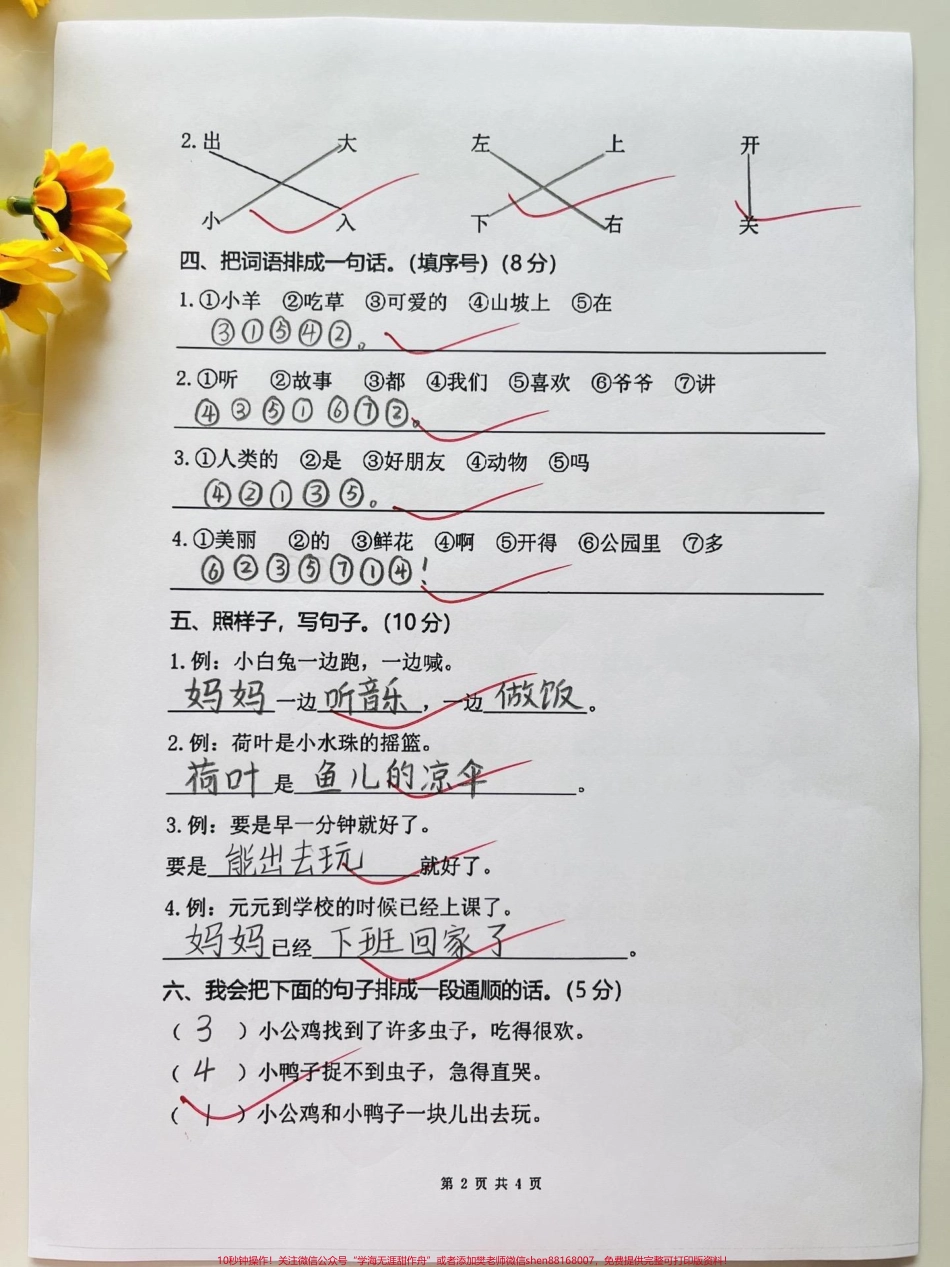 2.出 大 左 上 开
小 入 下 右 关
四、把词语排成一句话。（填序号）（8分）
1.①小羊 ②吃草 ③可爱的 ④山坡上 ⑤在
③①⑤④②。
2.①听 ②故事 ③都 ④我们 ⑤喜欢 ⑥爷爷 ⑦讲
④③⑤①⑥⑦②。
3.①人类的 ②是 ③好朋友 ④动物 ⑤吗
④②①③⑤。
4.①美丽 ②的 ③鲜花 ④啊 ⑤开得 ⑥公园里 ⑦多
⑥②③⑤⑦①④！
五、照样子，写句子。（10分）
1.例：小白兔一边跑，一边喊。
妈妈一边听音乐，一边做饭。
2.例：荷叶是小水珠的摇篮。
荷叶是鱼儿的凉伞。
3.例：要是早一分钟就好了。
要是能出去玩就好了。
4.例：元元到学校的时候已经上课了。
妈妈已经下班回家了。
六、我会把下面的句子排成一段通顺的话。（5分）
（3）小公鸡找到了许多虫子，吃得很欢。
（4）小鸭子捉不到虫子，急得直哭。
（1）小公鸡和小鸭子一块儿出去玩。
第 2 页 共 4 页
10秒钟操作！关注微信公众号“学海无涯甜作舟”或者添加樊老师微信shen88168007，免费提供完整可打印版资料！